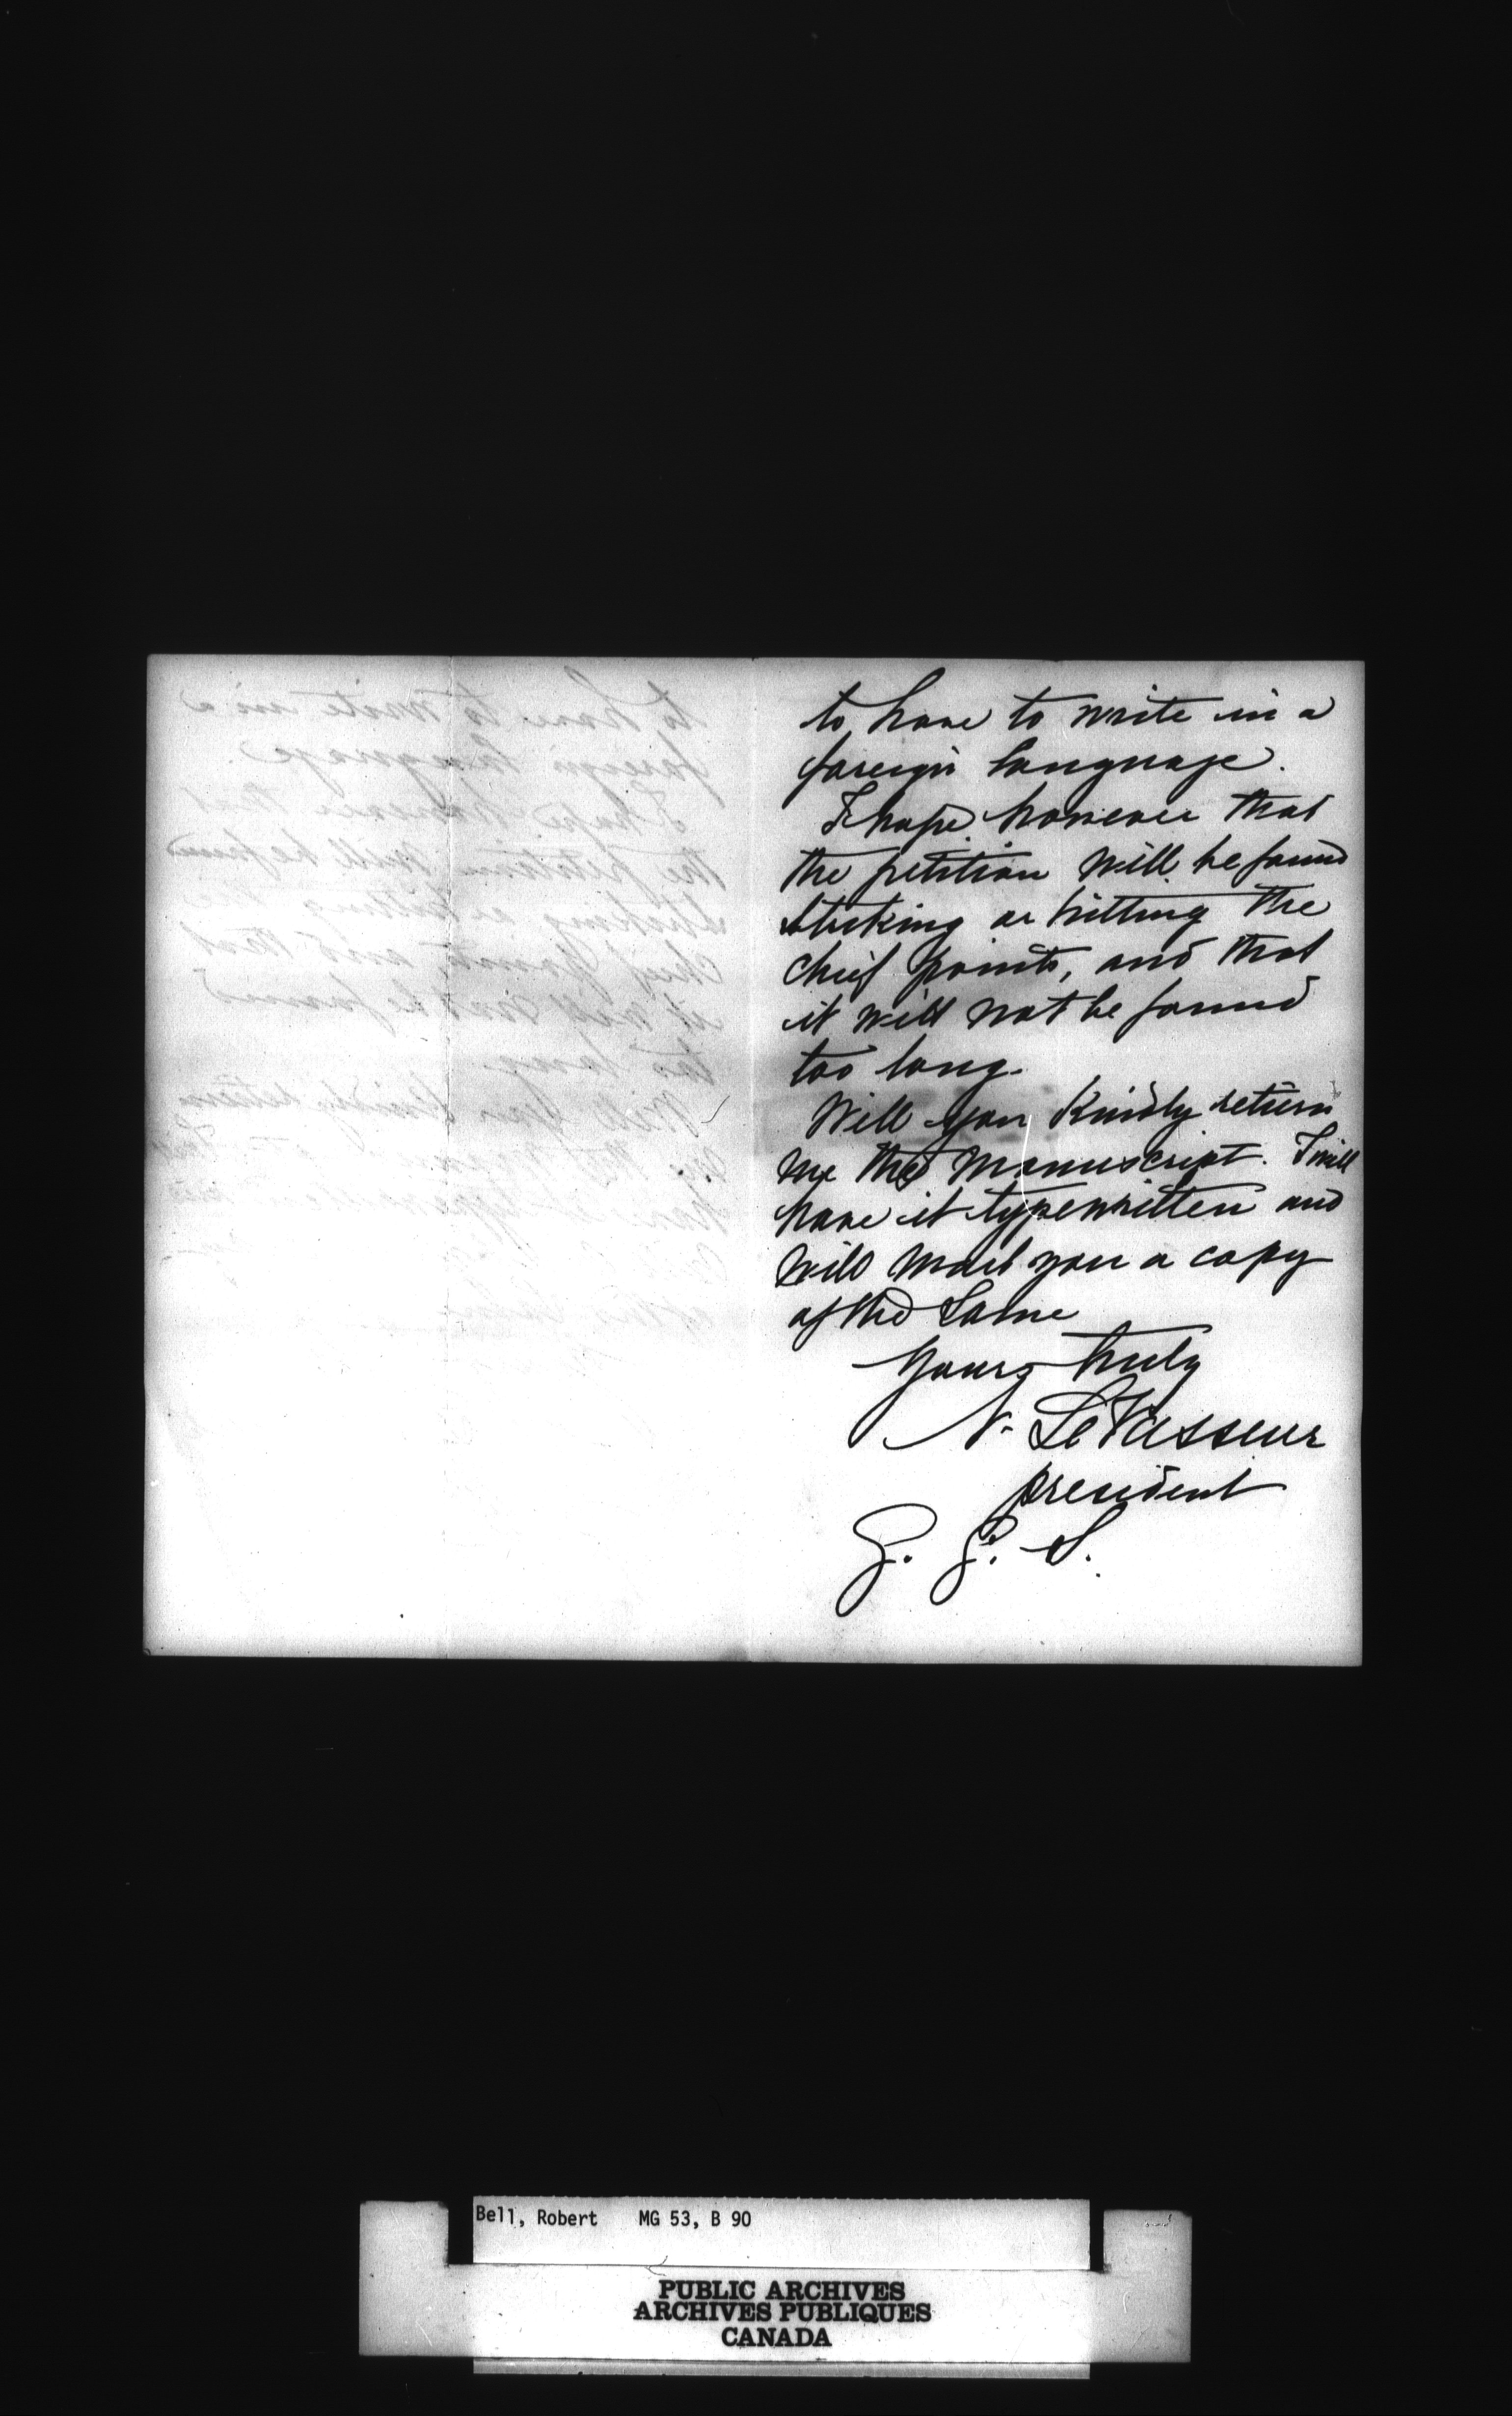 to have to write in a
foreign language.
I hope however that
the petition will be found
striking or hitting the
chief points, and that
it will not be found
too long.
Will you Kindly return
me the manuscript. I will
have it typewritten and
will mail you a copy
of the same
Yours truly
N. LeVasseur
president
G. S.
Bell, Robert MG 53, B 90
PUBLIC ARCHIVES
ARCHIVES PUBLIQUES
CANADA